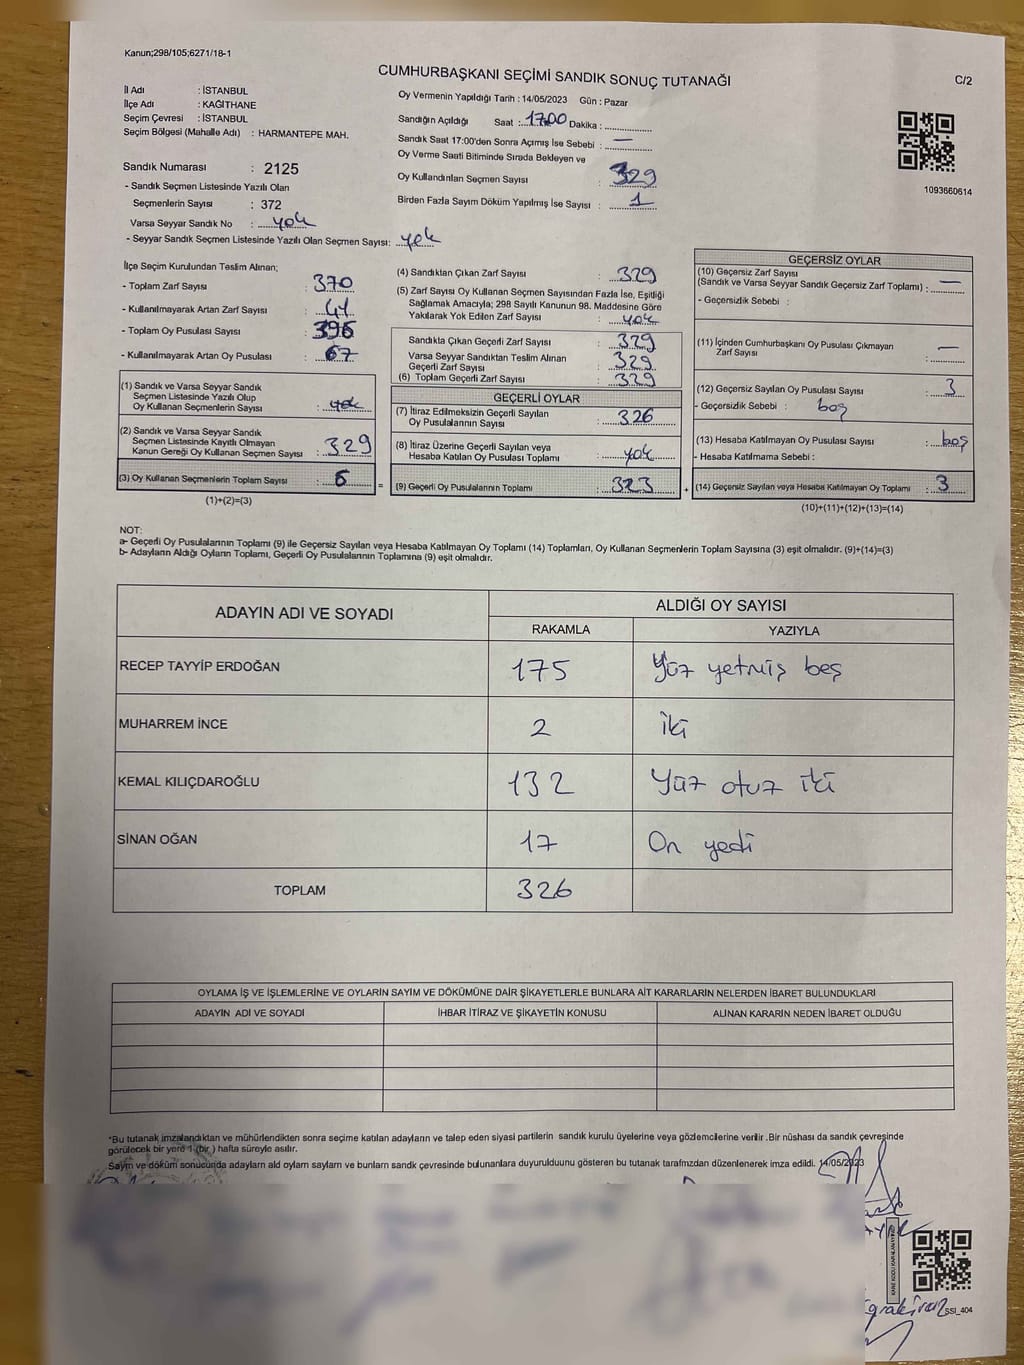 Kanun;298/105;6271/18-1
CUMHURBAŞKANI SEÇİMİ SANDIK SONUÇ TUTANAĞI
C/2
İl Adı : İSTANBUL
İlçe Adı : KAĞITHANE
Seçim Çevresi : İSTANBUL
Seçim Bölgesi (Mahalle Adı) : HARMANTEPE MAH.
Sandık Numarası : 2125
- Sandık Seçmen Listesinde Yazılı Olan
Seçmenlerin Sayısı : 372
Varsa Seyyar Sandık No : yok
- Seyyar Sandık Seçmen Listesinde Yazılı Olan Seçmen Sayısı: yok
Oy Vermenin Yapıldığı Tarih : 14/05/2023 Gün : Pazar
Sandığın Açıldığı Saat : 17.00 Dakika :
Sandık Saat 17:00'den Sonra Açımış İse Sebebi : —
Oy Verme Saati Bitiminde Sırada Bekleyen ve
Oy Kullandırılan Seçmen Sayısı : 329
Birden Fazla Sayım Döküm Yapılmış İse Sayısı : 1
1093660614
İlçe Seçim Kurulundan Teslim Alınan;
- Toplam Zarf Sayısı : 370
- Kullanılmayarak Artan Zarf Sayısı : 41
- Toplam Oy Pusulası Sayısı : 396
- Kullanılmayarak Artan Oy Pusulası : 67
(1) Sandık ve Varsa Seyyar Sandık
Seçmen Listesinde Yazılı Olup
Oy Kullanan Seçmenlerin Sayısı : yok
(2) Sandık ve Varsa Seyyar Sandık
Seçmen Listesinde Kayıtlı Olmayan
Kanun Gereği Oy Kullanan Seçmen Sayısı : 329
(3) Oy Kullanan Seçmenlerin Toplam Sayısı :
(1)+(2)=(3)
(4) Sandıktan Çıkan Zarf Sayısı : 329
(5) Zarf Sayısı Oy Kullanan Seçmen Sayısından Fazla İse, Eşitliği
Sağlamak Amacıyla; 298 Sayılı Kanunun 98. Maddesine Göre
Yakılarak Yok Edilen Zarf Sayısı : yok
Sandıkta Çıkan Geçerli Zarf Sayısı : 329
Varsa Seyyar Sandıktan Teslim Alınan
Geçerli Zarf Sayısı : 329
(6) Toplam Geçerli Zarf Sayısı : 329
GEÇERLİ OYLAR
(7) İtiraz Edilmeksizin Geçerli Sayılan
Oy Pusulalarının Sayısı : 326
(8) İtiraz Üzerine Geçerli Sayılan veya
Hesaba Katılan Oy Pusulası Toplamı : yok
= (9) Geçerli Oy Pusulalarının Toplamı : 323 +
GEÇERSİZ OYLAR
(10) Geçersiz Zarf Sayısı
(Sandık ve Varsa Seyyar Sandık Geçersiz Zarf Toplamı) : —
- Geçersizlik Sebebi :
(11) İçinden Cumhurbaşkanı Oy Pusulası Çıkmayan
Zarf Sayısı : —
(12) Geçersiz Sayılan Oy Pusulası Sayısı : 3
- Geçersizlik Sebebi : boş
(13) Hesaba Katılmayan Oy Pusulası Sayısı : boş
- Hesaba Katılmama Sebebi :
(14) Geçersiz Sayılan veya Hesaba Katılmayan Oy Toplamı : 3
(10)+(11)+(12)+(13)=(14)
NOT:
a- Geçerli Oy Pusulalarının Toplamı (9) ile Geçersiz Sayılan veya Hesaba Katılmayan Oy Toplamı (14) Toplamları, Oy Kullanan Seçmenlerin Toplam Sayısına (3) eşit olmalıdır. (9)+(14)=(3)
b- Adayların Aldığı Oyların Toplamı, Geçerli Oy Pusulalarının Toplamına (9) eşit olmalıdır.
ADAYIN ADI VE SOYADI ALDIĞI OY SAYISI
RAKAMLA YAZIYLA
RECEP TAYYİP ERDOĞAN 175 Yüz yetmiş beş
MUHARREM İNCE 2 İki
KEMAL KILIÇDAROĞLU 132 Yüz otuz iki
SİNAN OĞAN 17 On yedi
TOPLAM 326
OYLAMA İŞ VE İŞLEMLERİNE VE OYLARIN SAYIM VE DÖKÜMÜNE DAİR ŞİKAYETLERLE BUNLARA AİT KARARLARIN NELERDEN İBARET BULUNDUKLARI
ADAYIN ADI VE SOYADI İHBAR İTİRAZ VE ŞİKAYETİN KONUSU ALINAN KARARIN NEDEN İBARET OLDUĞU
*Bu tutanak imzalandıktan ve mühürlendikten sonra seçime katılan adayların ve talep eden siyasi partilerin sandık kurulu üyelerine veya gözlemcilerine verilir .Bir nüshası da sandık çevresinde
görülecek bir yere 1 (bir) hafta süreyle asılır.
Sayım ve döküm sonucunda adayların ald oyların sayların ve bunların sandk çevresinde bulunanlara duyurulduunu gösteren bu tutanak tarafımzdan düzenlenerek imza edildi. 14/05/2023
SSI_404